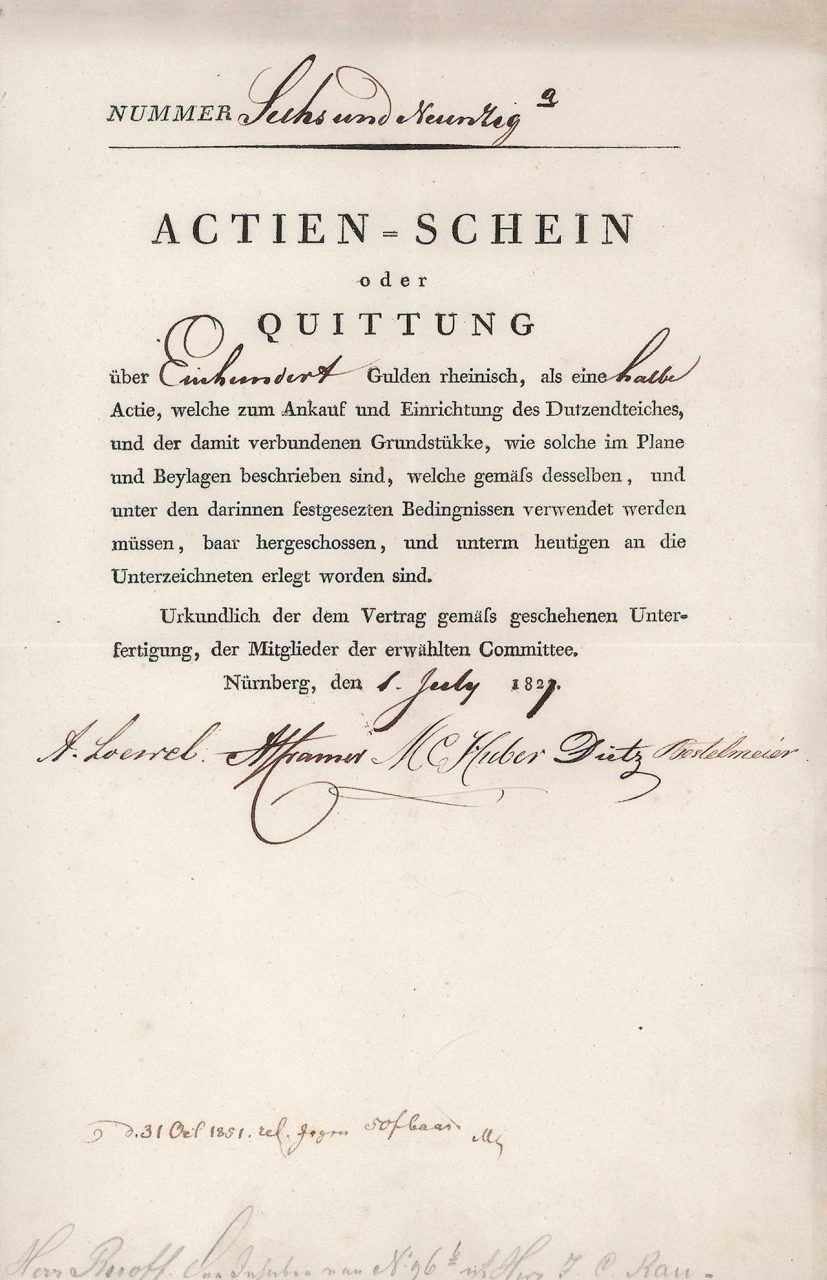 NUMMER Sechs und Neunzig a
ACTIEN = SCHEIN
oder
QUITTUNG
über Einhundert Gulden rheinisch, als eine halbe
Actie, welche zum Ankauf und Einrichtung des Dutzendteiches,
und der damit verbundenen Grundstükke, wie solche im Plane
und Beylagen beschrieben sind, welche gemäſs desselben, und
unter den darinnen festgesezten Bedingnissen verwendet werden
müssen, baar hergeschossen, und unterm heutigen an die
Unterzeichneten erlegt worden sind.
Urkundlich der dem Vertrag gemäſs geschehenen Unter-
fertigung, der Mitglieder der erwählten Committee.
Nürnberg, den 1. July 1827.
A. Loewel. Cramer MC Huber Dietz Bestelmeier
d. 31 Oct 1851. rel. gegen 50f baar.
Herr N. 96 Herr J C Rau-